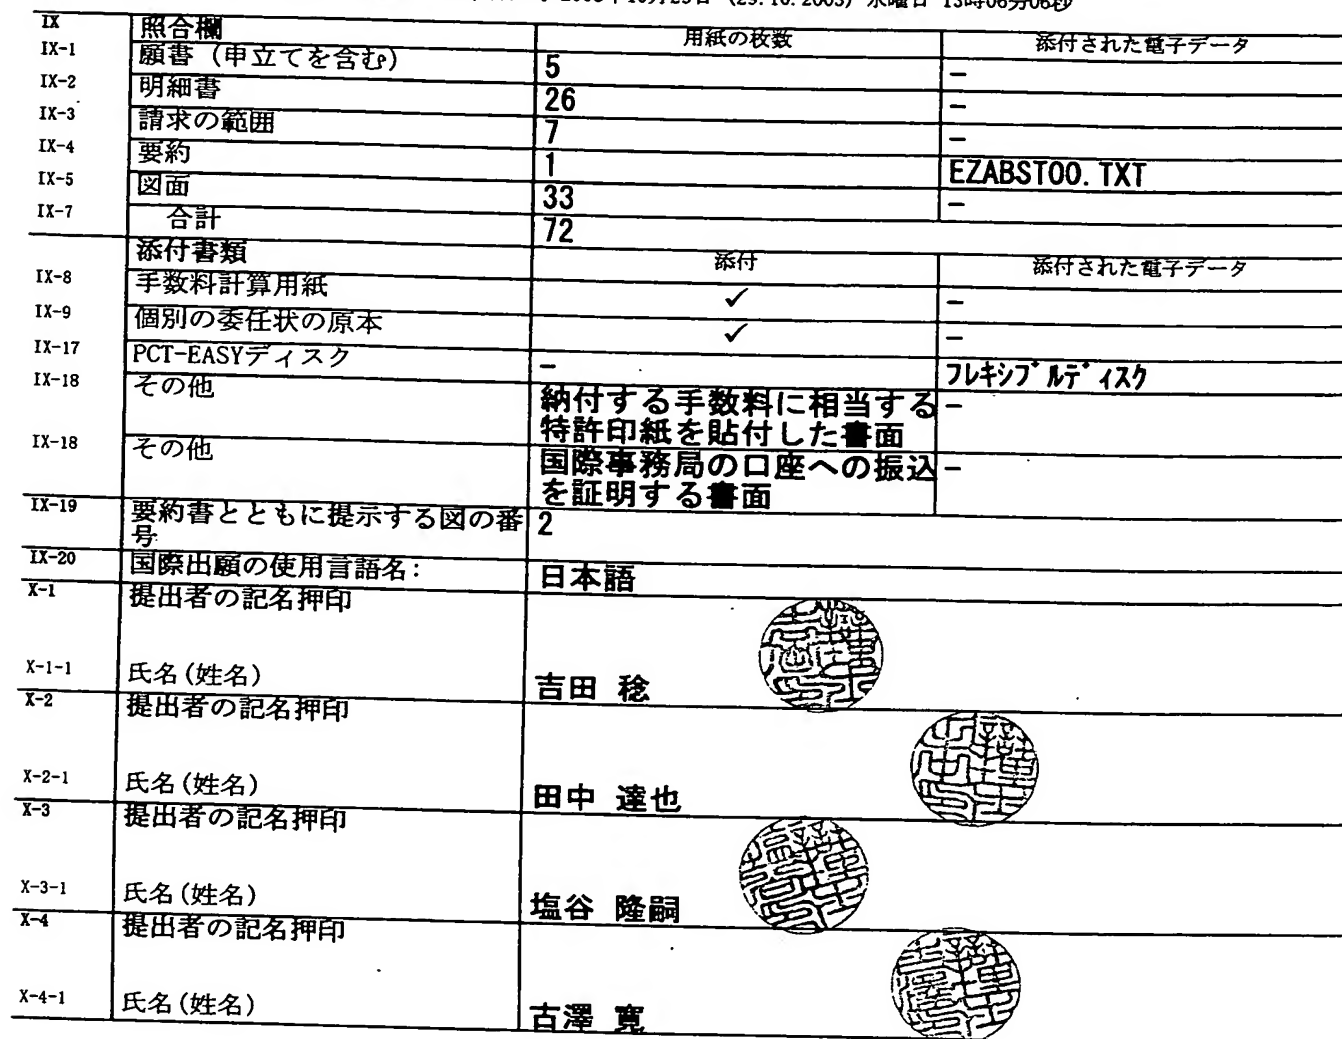 2003年10月29日 (29.10.2003) 水曜日 13時06分06秒
IX 照合欄 用紙の枚数 添付された電子データ
IX-1 願書 (申立てを含む) 5 -
IX-2 明細書 26 -
IX-3 請求の範囲 7 -
IX-4 要約 1 EZABST00.TXT
IX-5 図面 33 -
IX-7 合計 72
添付書類 添付 添付された電子データ
IX-8 手数料計算用紙 ✓ -
IX-9 個別の委任状の原本 ✓ -
IX-17 PCT-EASYディスク - フレキシブルディスク
IX-18 その他 納付する手数料に相当する -
特許印紙を貼付した書面
IX-18 その他 国際事務局の口座への振込 -
を証明する書面
IX-19 要約書とともに提示する図の番 2
号
IX-20 国際出願の使用言語名: 日本語
X-1 提出者の記名押印
X-1-1 氏名(姓名) 吉田 稔
X-2 提出者の記名押印
X-2-1 氏名(姓名) 田中 達也
X-3 提出者の記名押印
X-3-1 氏名(姓名) 塩谷 隆嗣
X-4 提出者の記名押印
X-4-1 氏名(姓名) 古澤 寛